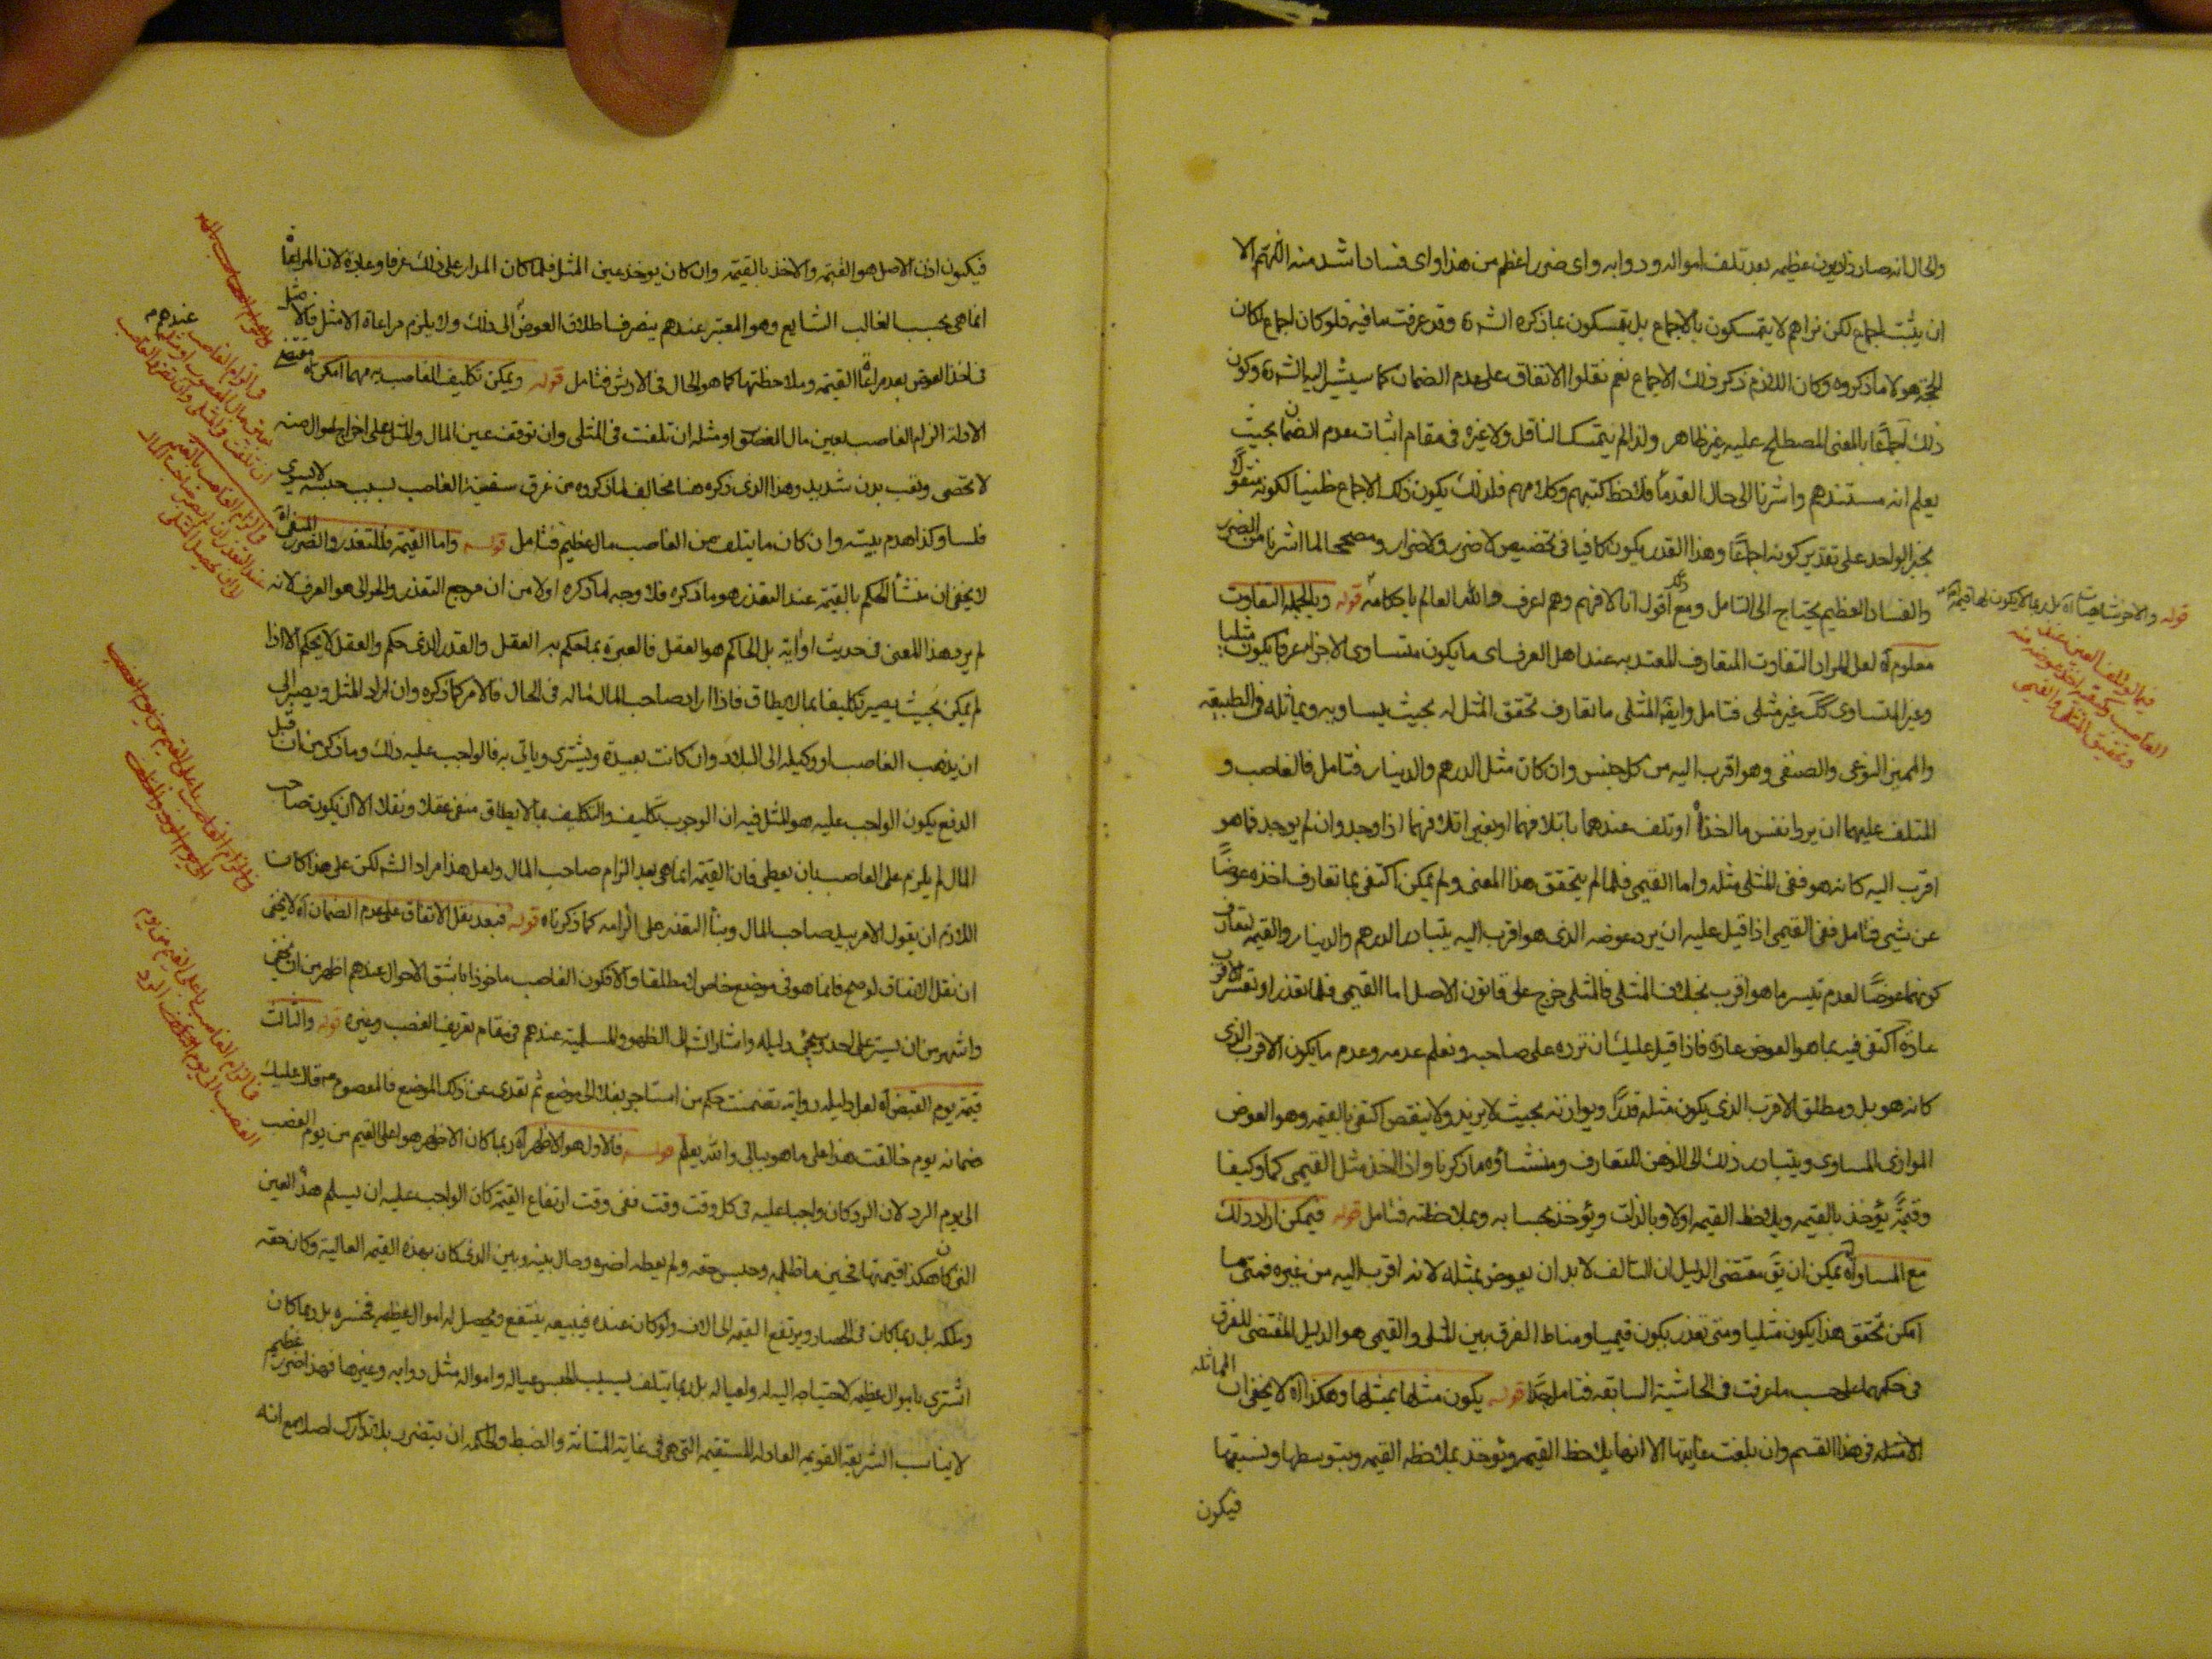 والحال انه صار ذا ديون عظيمه بعد تلف امواله ودوابه واى ضرر اعظم من هذا واى فساد اشد منه اللهم الا
ان يثبت اجماع لكن نراهم لا يتمسكون بالاجماع بل يتمسكون بما ذكره الشه وقد عرفت ما فيه فلو كان اجماع لكان
الحجة هو لا ما ذكروه وكان اللازم ذكر ذلك الاجماع نعم نقلوا الاتفاق على عدم الضمان كما سيشير اليه الشه وكون
ذلك اجماعًا بالمعنى المصطلح عليه غير ظاهر ولذا لم يتمسك الناقل ولا غيره فى مقام اثبات عدم الضمان بحيث
يعلم انه مستندهم واشرنا الى حال القدماء فلاحظ كتبهم وكلامهم فلذلك يكون ذلك الاجماع ظنيا لكونه منقولًا
بخبر الواحد على تقدير كونه اجماعًا وهذا القدر يكون كافيا فى تخصيص لا ضرر ولا ضرار ومصححا لما اشرنا من الضرر
والفساد العظيم يحتاج الى التامل ومع ذلك اقول انا لا افهم وهم اعرف والله العالم باحكامه قوله وبالجمله التفاوت
معلوم آه لعل المراد التفاوت المتعارف المعتد به عند اهل العرف اى ما يكون متساوى الاجزاء عرفا يكون مثليا
وغير المتساوى كك غير مثلى فتامل وايضا المثلى ما تعارف تحقق المثل له بحيث يساويه ويماثله فى الطبيعه
والمميز النوعى والصنفى وهو اقرب اليه من كل جنس وان كان مثل الدرهم والدينار فتامل فالغاصب و
المتلف عليهما ان يردا نفس ما اخذاه او تلف عندهما باتلافهما او بغير اتلافهما اذا وجد وان لم يوجد فما هو
اقرب اليه كانه هو ففى المثلى مثله واما القيمى فلما لم يتحقق هذا المعنى ولم يمكن اكتفى بما تعارف اخذه عوضًا
عن شىء فتامل ففى القيمى اذا قيل عليه ان يرد عوضه الذى هو اقرب اليه يتبادر الدرهم والدينار والقيمه لتعارف
كونهما عوضًا لعدم تيسر ما هو اقرب بخلاف المثلى فالمثلى خرج على قانون الاصل اما القيمى فلما تعذر او تعسر الاقرب
عادة اكتفى فيه بما هو العوض عادة فاذا قيل عليك ان ترده على صاحبه ونعلم عدمه وعدم ما يكون الاقرب الذى
كانه هو بل ومطلق الاقرب الذى يكون مثله قدرًا ويوازنه بحيث لا يزيد ولا ينقص اكتفى بالقيمه وهو العوض
الموازى المساوى ويتبادر ذلك الى الذهن للتعارف ومنشاؤه ما ذكرنا واذا اخذ مثل القيمى كما وكيفا
وقيمًة يؤخذ بالقيمه ويلاحظ القيمه اولا وبالذات ويؤخذ بحسابه وبملاحظته فتامل قوله فيمكن اراد ذلك
مع المساواة آه يمكن ان يق مقتضى الدليل ان التالف لا بد ان يعوض بمثله لانه اقرب اليه من غيره فمتى ما
امكن تحقق هذا يكون مثليا ومتى تعذر يكون قيميا ومناط الفرق بين المثلى والقيمى هو الدليل المقتضى للفرق
فى حكمهما على حسب ما عرفت فى الحاشية السابقه فتامل جدًا قوله يكون مثلها بمثلها وهكذا آه لا يخفى ان المماثله
الامثله فى هذا القسم وان بلغت غايتها الا انها يلاحظ القيمه ويؤخذ بملاحظه القيمه وبتوسطها ونسبتها
فيكون
قوله والاخر شاهدت آه بل ربما لا يكون لها قيمة آه
فيما لو تلف العين عند
الغاصب وكيفيه اخذ عوضه منه
وتحقيق المثلى والقيمى
فيكون اذن الاصل هو القيمه والاخذ بالقيمه وان كان يوخذ عين المثل فلما كان المدار على ذلك عرفا وعادة لان المراعاة
انما هى بحسب الغالب الشايع وهو المعتبر عندهم ينصرف اطلاق العوض الى ذلك ولا يلزم مراعاة الامثل فالامثل
فى اخذ العوض بعد مراعاة القيمه وملاحظتها كما هو الحال فى الارش فتامل قوله ويمكن تكليف الغاصب به مهما امكن آه مقتضى
الادله الزام الغاصب بعين مال المغصوب او مثله ان تلفت فى المثلى وان توقف عين المال والمثل على اخراج اموال منه
لا تحصى وتعب بدن شديد وهذا الذى ذكره هنا مخالف لما ذكروه من غرق سفينة الغاصب بسبب خشبه لا يسوى
فلسا وكذا هدم بيته وان كان ما يتلف من الغاصب مال عظيم فتامل قوله واما القيمه فللتعذر والضرر المنفى آه
لا يخفى ان منشأ الحكم بالقيمه عند التعذر هو ما ذكره فلا وجه لما ذكره اولا من ان مرجع التعذر والحوالى هو العرف لانه
لم يرد هذا المعنى فى حديث او آية بل الحاكم هو العقل فالعبرة بما يحكم به العقل والقدر الذى حكم والعقل لا يحكم الا اذا
لم يمكن بحيث يصير تكليفا بما لا يطاق فاذا اراد صاحب المال ماله فى الحال فالامر كما ذكره وان اراد المثل ويصبر الى
ان يذهب الغاصب او وكيله الى البلاد وان كانت بعيدة ويشترى وياتى به فالواجب عليه ذلك وما ذكر من ان قبل
الدفع يكون الواجب عليه هو المثل فيه ان الوجوب تكليف والتكليف بما لا يطاق منفى عقلا ونقلا الا ان يكون صاحب
المال لم يلزم على الغاصب بان يعطى فان القيمة انما هى بعد الزام صاحب المال ولعل هذا مراد الشه لكن على هذا كان
اللازم ان يقول الامر بيد صاحب المال وبنأ التعذر على الزامه كما ذكرناه قوله فبعد نقل الاتفاق على عدم الضمان آه لا يخفى
ان نقل الاتفاق لو صح فانما هو فى موضع خاص لا مطلقا والا فكون الغاصب ماخوذا باشق الاحوال عندهم اظهر من ان يخفى
واشهر من ان يستر على احد ويجئ دليله واشار الشه الى الظهور والمسلمية عندهم فى مقام تعريف الغصب وغيره قوله والثالث
قيمة يوم القبض آه لعل دليله رواية تضمنت حكم من استاجر بغلا الى موضع ثم تعدى عن ذلك الموضع فالمعصوم ع قال عليك
ضمانه يوم خالفت هذا على ما هو ببالى والله يعلم قوله فالاول هو الاظهر آه ربما كان الاظهر هو اعلى القيم من يوم الغصب
الى يوم الرد لان الرد كان واجبا عليه فى كل وقت وقت ففى وقت ارتفاع القيمه كان الواجب عليه ان يسلم هذه العين
التى كان هكذا قيمتها فحين ما ظلمه وحبس حقه ولم يعطه اضره وحال بينه وبين الذى كان بهذه القيمه العالية وكان حقه
وملكه بل ربما كان فى الحصار ويرتفع القيمه الى آلاف ولو كان عنده فيبيعه ينتفع ويحصل له اموال عظيمه فخسره بل ربما كان
اشترى باموال عظيمه لاحتياجه اليه له ولعياله بل ربما يتلف بسبب الحبس عياله وامواله مثل دوابه وغيرها فهذا ضرر عظيم
لا يناسب الشريعة القويمه العادله المستقيمه التى هى فى غاية المتانة والضبط والحكمه ان يتضرر بلا تدارك اصلا مع انه
فى الزام الغاصب عندهم
بعين مال المغصوب او مثله
ان تلفت فى المثلى وان تضرر الغاصب
فى الزام الغاصب بالقيمه
عند التعذر ان لم يصبر صاحب المال
لاوان تحصيل المثلى
فى الزام الغاصب باعلى القيم من يوم الغصب
الى يوم الرد
فى الزام الغاصب باعلى القيم من يوم
الغصب الى يوم الرد